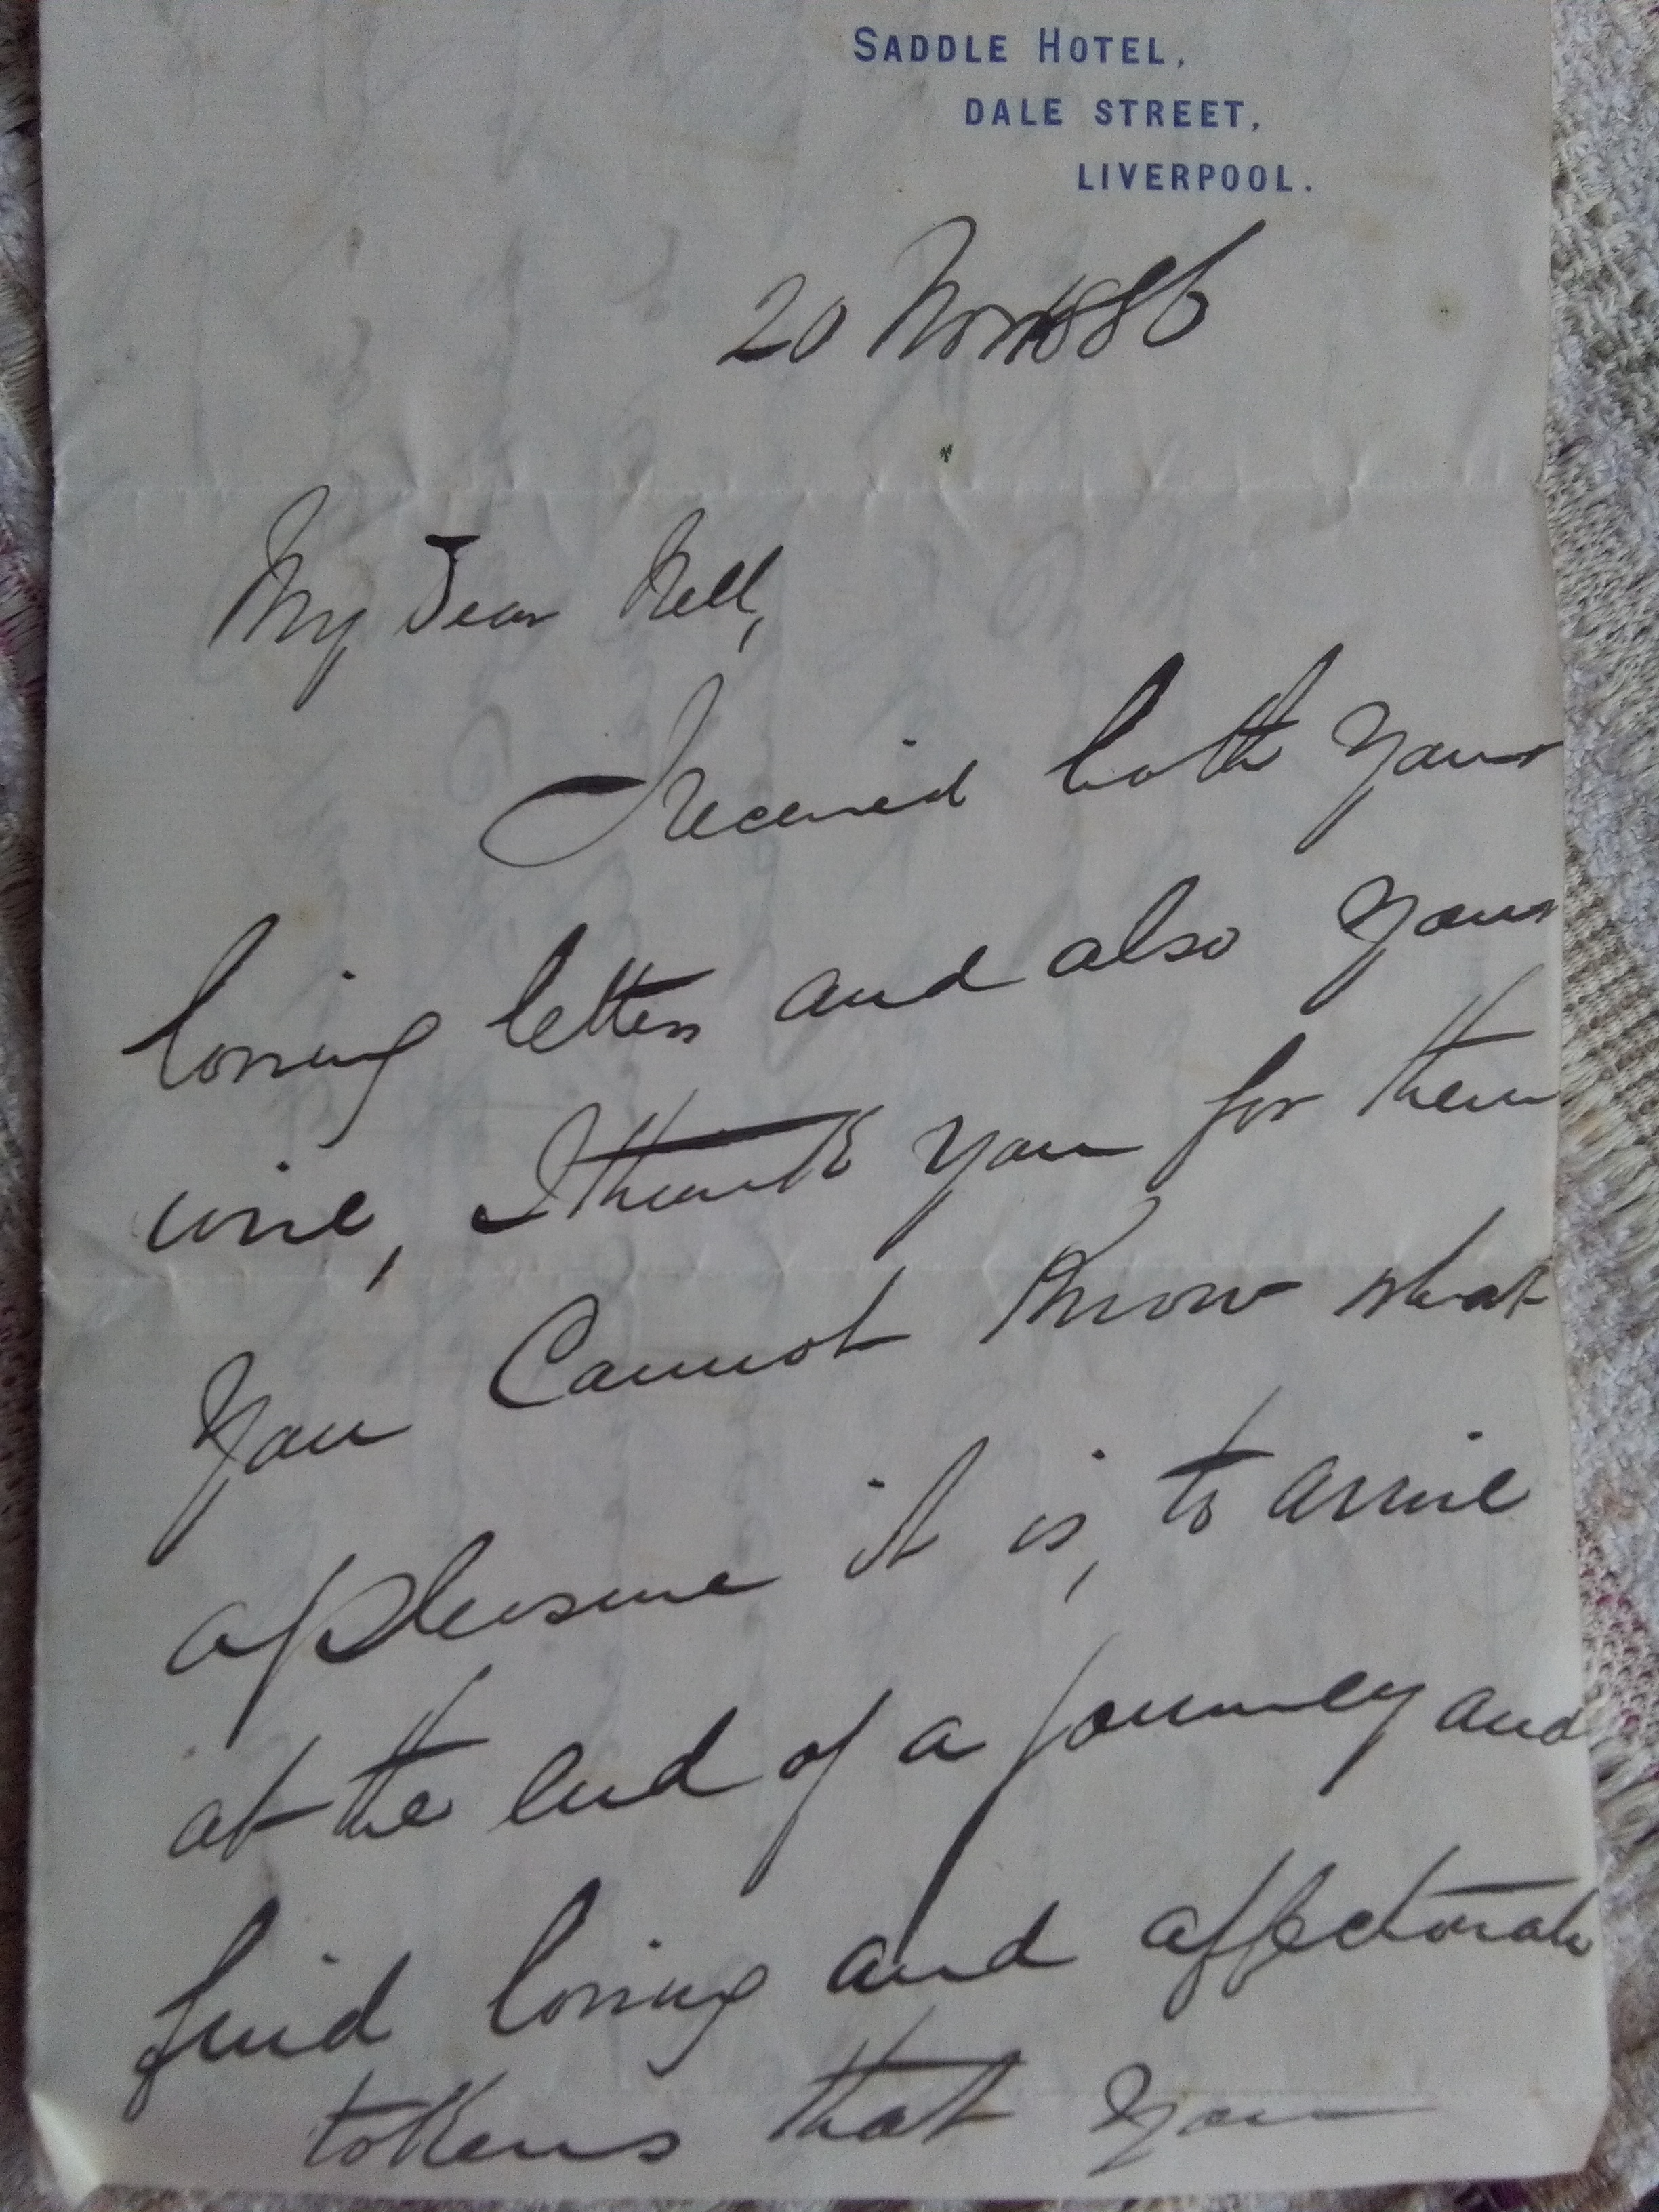 SADDLE HOTEL,
DALE STREET,
LIVERPOOL.
20 Nov 1886
My Dear Nell,
I received both your
loving letters and also your
wire, I thank you for them
You Cannot know what
a pleasure it is, to arrive
at the end of a journey and
find loving and affectionate
tokens that you